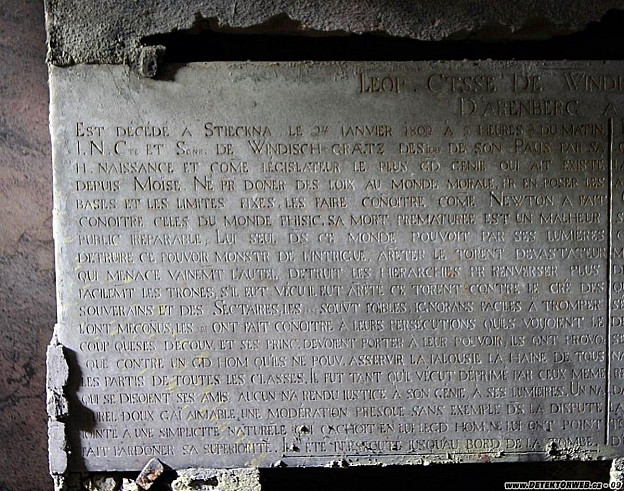 LEOP. CTESSE DE WINDIS
D'ARENBERG A
EST DÉCÉDÉ A STIECKNA, LE 24 IANVIER 1802 A 5 HEURES ½ DU MATIN,
I. N. CTE ET SGNR. DE WINDISCH-GRÆTZ DE SON PAUS PAR SA
H. NAISSANCE ET COME LÉGISLATEUR LE PLUS GD GENIE QUI AIT EXISTE
DEPUIS MOISE. NE PR DONER DES LOIX AU MONDE MORALE, PR EN POSER LES
BASES ET LES LIMITES FIXES, LES FAIRE CONOITRE COME NEWTON A FAIT
CONOITRE CELES DU MONDE PHISIC, SA MORT PREMATURÉE EST UN MALHEUR
PUBLIC IREPARABLE, LUI SEUL DS CE MONDE POUVOIT PAR SES LUMIERES
DETRUIRE CE POUVOIR MONSTR DE L'INTRIGUE, ARETER LE TORENT DEVASTATEUR
QUI MENACE VAINEMT L'AUTEL, DETRUIT LES HIERARCHIES PR RENVERSER PLUS
FACILEMT LES TRONES, S'IL EUT VÉCU IL EUT ARETÉ CE TORENT CONTRE LE GRÉ DES
SOUVERAINS ET DES SECTAIRES, LES SOUVT FOIBLES, IGNORANS FACILES A TROMPER
L'ONT MECONUS, LES ONT FAIT CONOITRE A LEURS PERSECUTIONS QU'ILS VOUJOIENT LE
COUP QUE SES DECOUV. ET SES PRINC. DEVOIENT PORTER A LEUR POUVOIR, ILS ONT PROVO-
QUÉ CONTRE UN GD HOM QU'ILS NE POUV. ASSERVIR LA JALOUSIE LA HAINE DE TOUS
LES PARTIS DE TOUTES LES CLASSES. IL FUT TANT QU'IL VÉCUT DEPRIMÉ PAR CEUX MEME
QUI SE DISOIENT SES AMIS, AUCUN N'A RENDU IUSTICE A SON GENIE A SES LUMIERES. UN NA-
TUREL DOUX GAI AIMABLE, UNE MODERATION PRESQUE SANS EXEMPLE DS LA DISPUTE
JOINTE A UNE SIMPLICITÉ NATURELE QUI CACHOIT EN LUI LE GD HOM. NE LUI ONT POINT
FAIT PARDONER SA SUPERIORITÉ. IL A ÉTÉ PERSECUTÉ JUSQU'AU BORD DE LA TOMBE.
WWW.DETEKTORWEB.CZ - 09